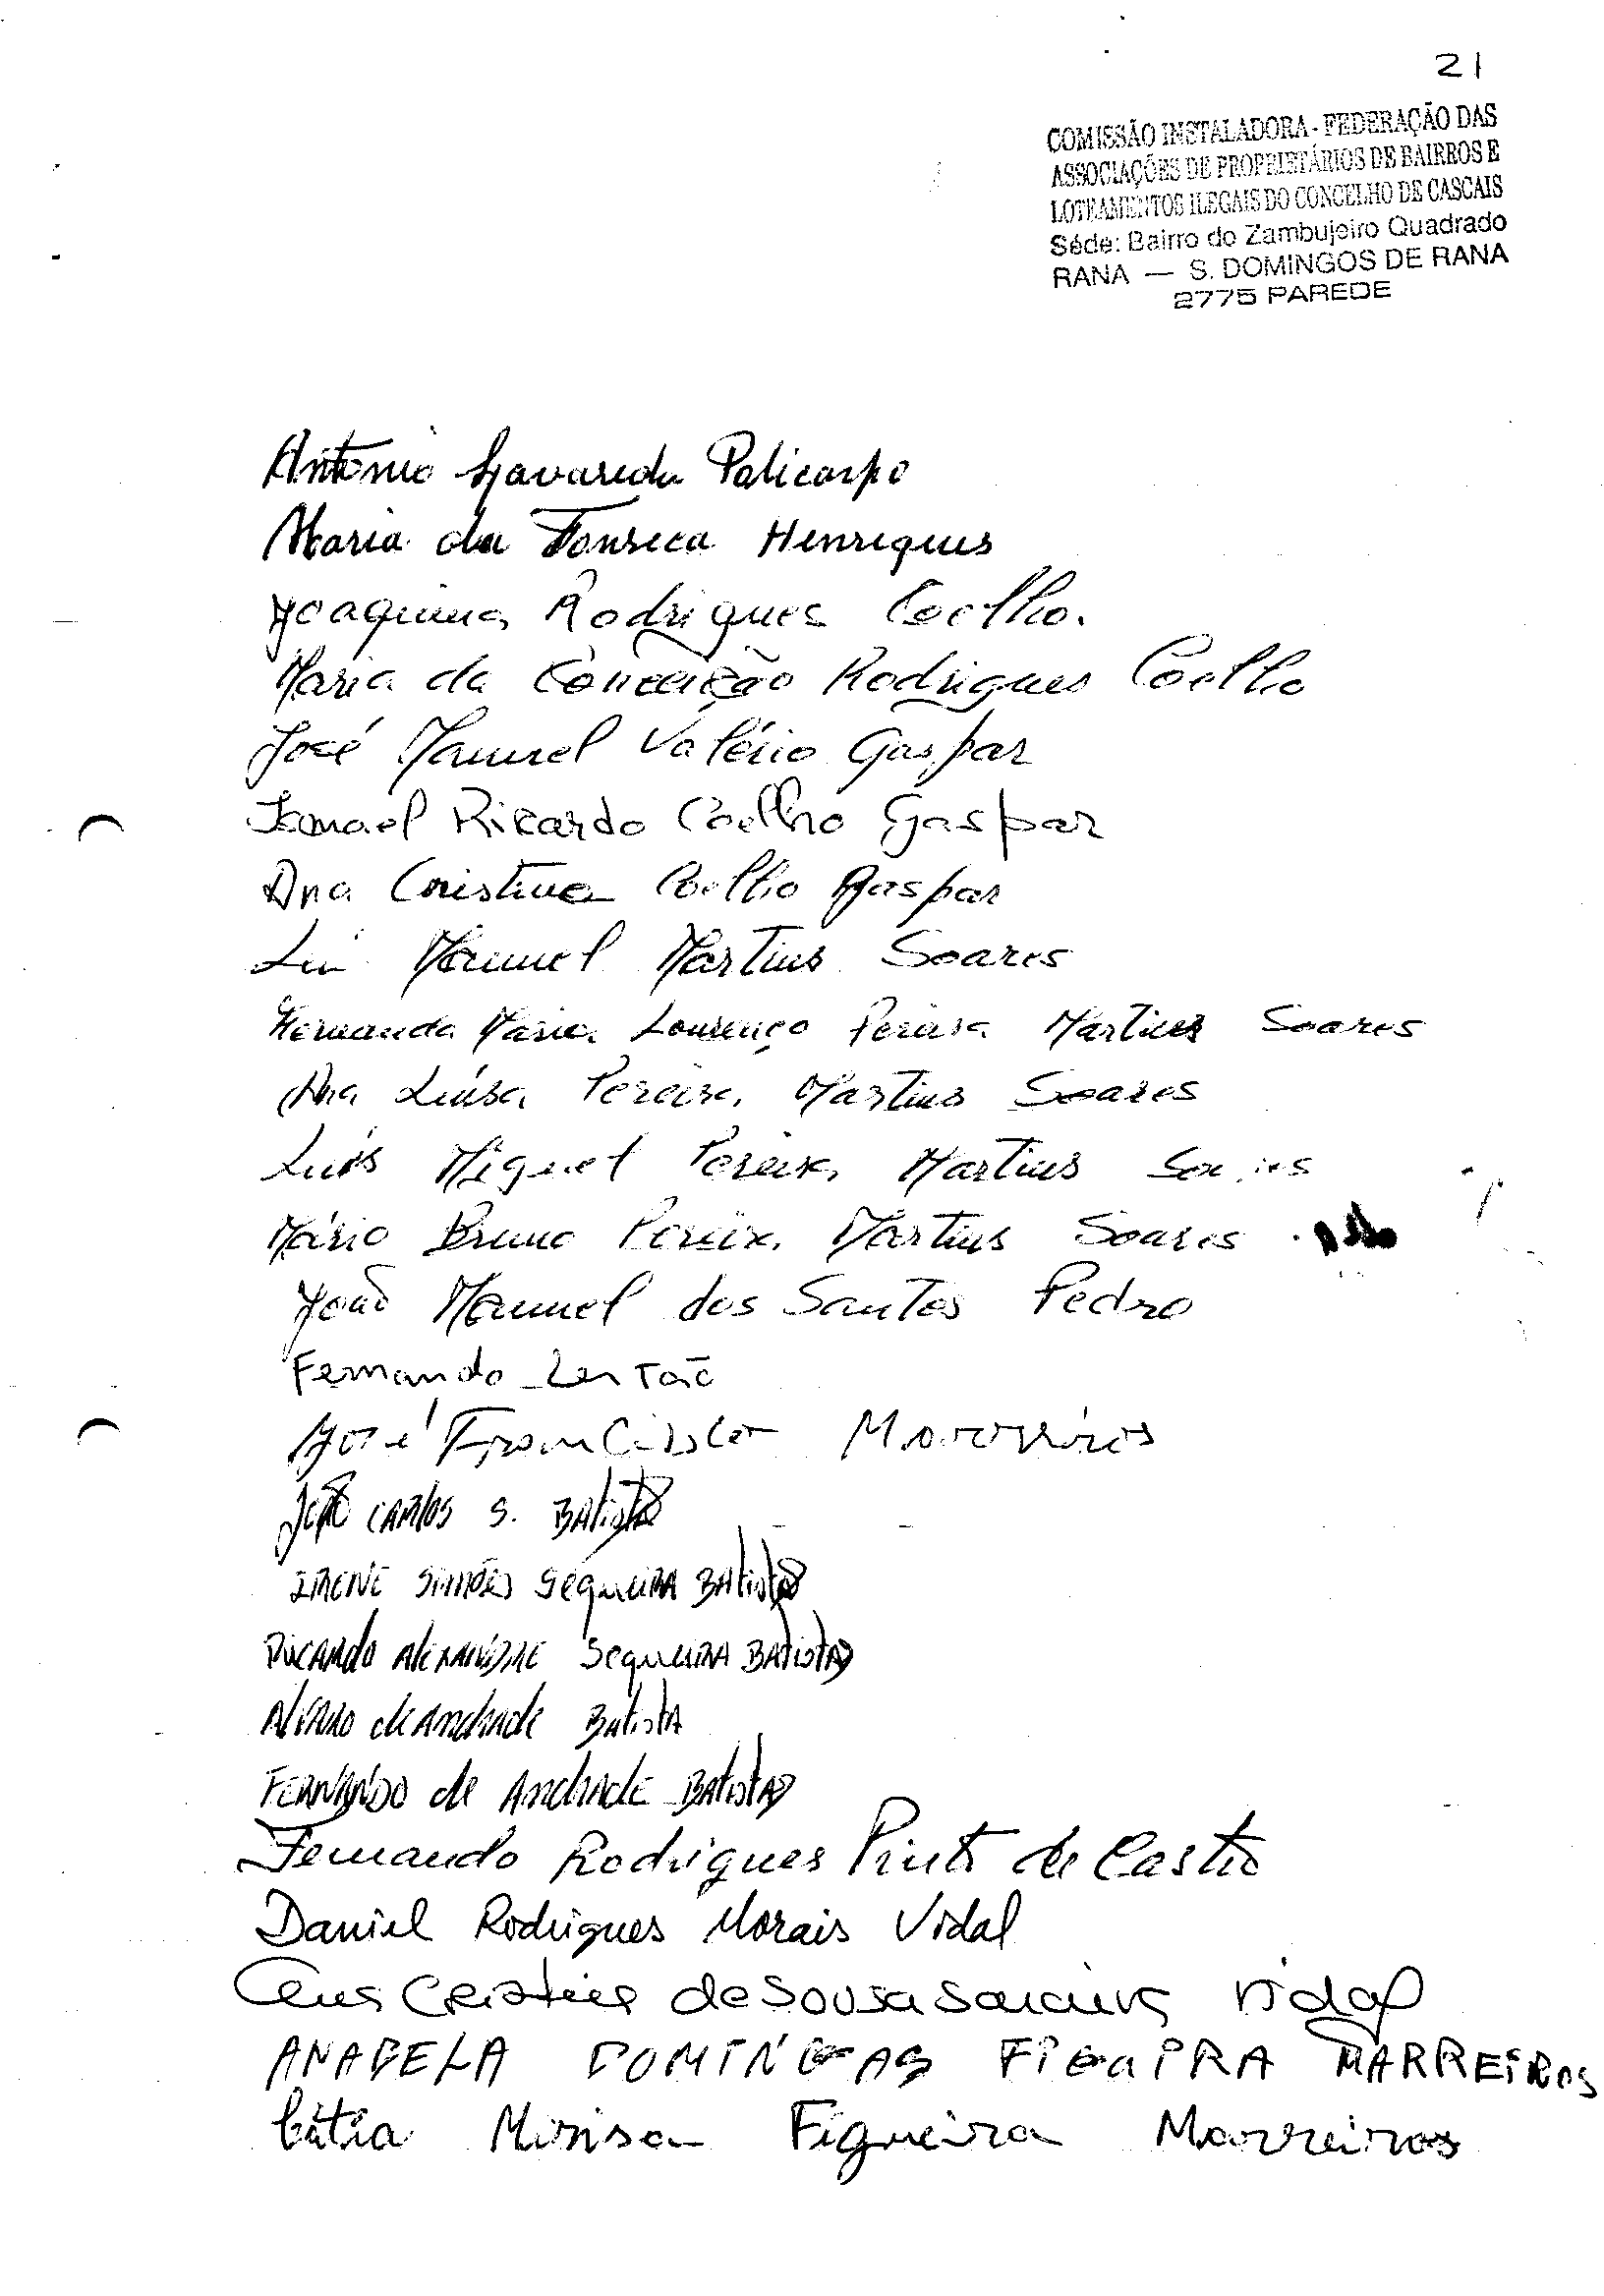 21
COMISSÃO INSTALADORA - FEDERAÇÃO DAS
ASSOCIAÇÕES DE PROPRIETÁRIOS DE BAIRROS E
LOTEAMENTOS ILEGAIS DO CONCELHO DE CASCAIS
Séde: Bairro do Zambujeiro Quadrado
RANA — S. DOMINGOS DE RANA
2775 PAREDE
António Policarpo
Maria da Fonseca Henriques
Joaquina Rodrigues Coelho.
Maria da Conceição Rodrigues Coelho
José Manuel Valério Gaspar
Ismael Ricardo Coelho Gaspar
Ana Cristina Coelho Gaspar
Manuel Martins Soares
Fernanda Maria Lourenço Pereira Martins Soares
Ana Luísa Pereira Martins Soares
Luís Miguel Pereira Martins
Mário Bruno Pereira Martins Soares
João Manuel dos Santos Pedro
Fernando
José Francisco Marreiros
JOÃO CARLOS S. BAtistA
IRENE SIMÕES SEqueiRA BAtistA
RICARDO AlEXANDRE SequeiRA BAtistA
AlVARO de Andrade BatistA
FERNANDO de AndrAdE BAtistA
Fernando Rodrigues Pinto de Castro
Daniel Rodrigues Morais Vidal
Cristina de Sousa Vidal
ANABELA DOMINGAS FIGUEIRA MARREIROS
Cátia Figueira Marreiros